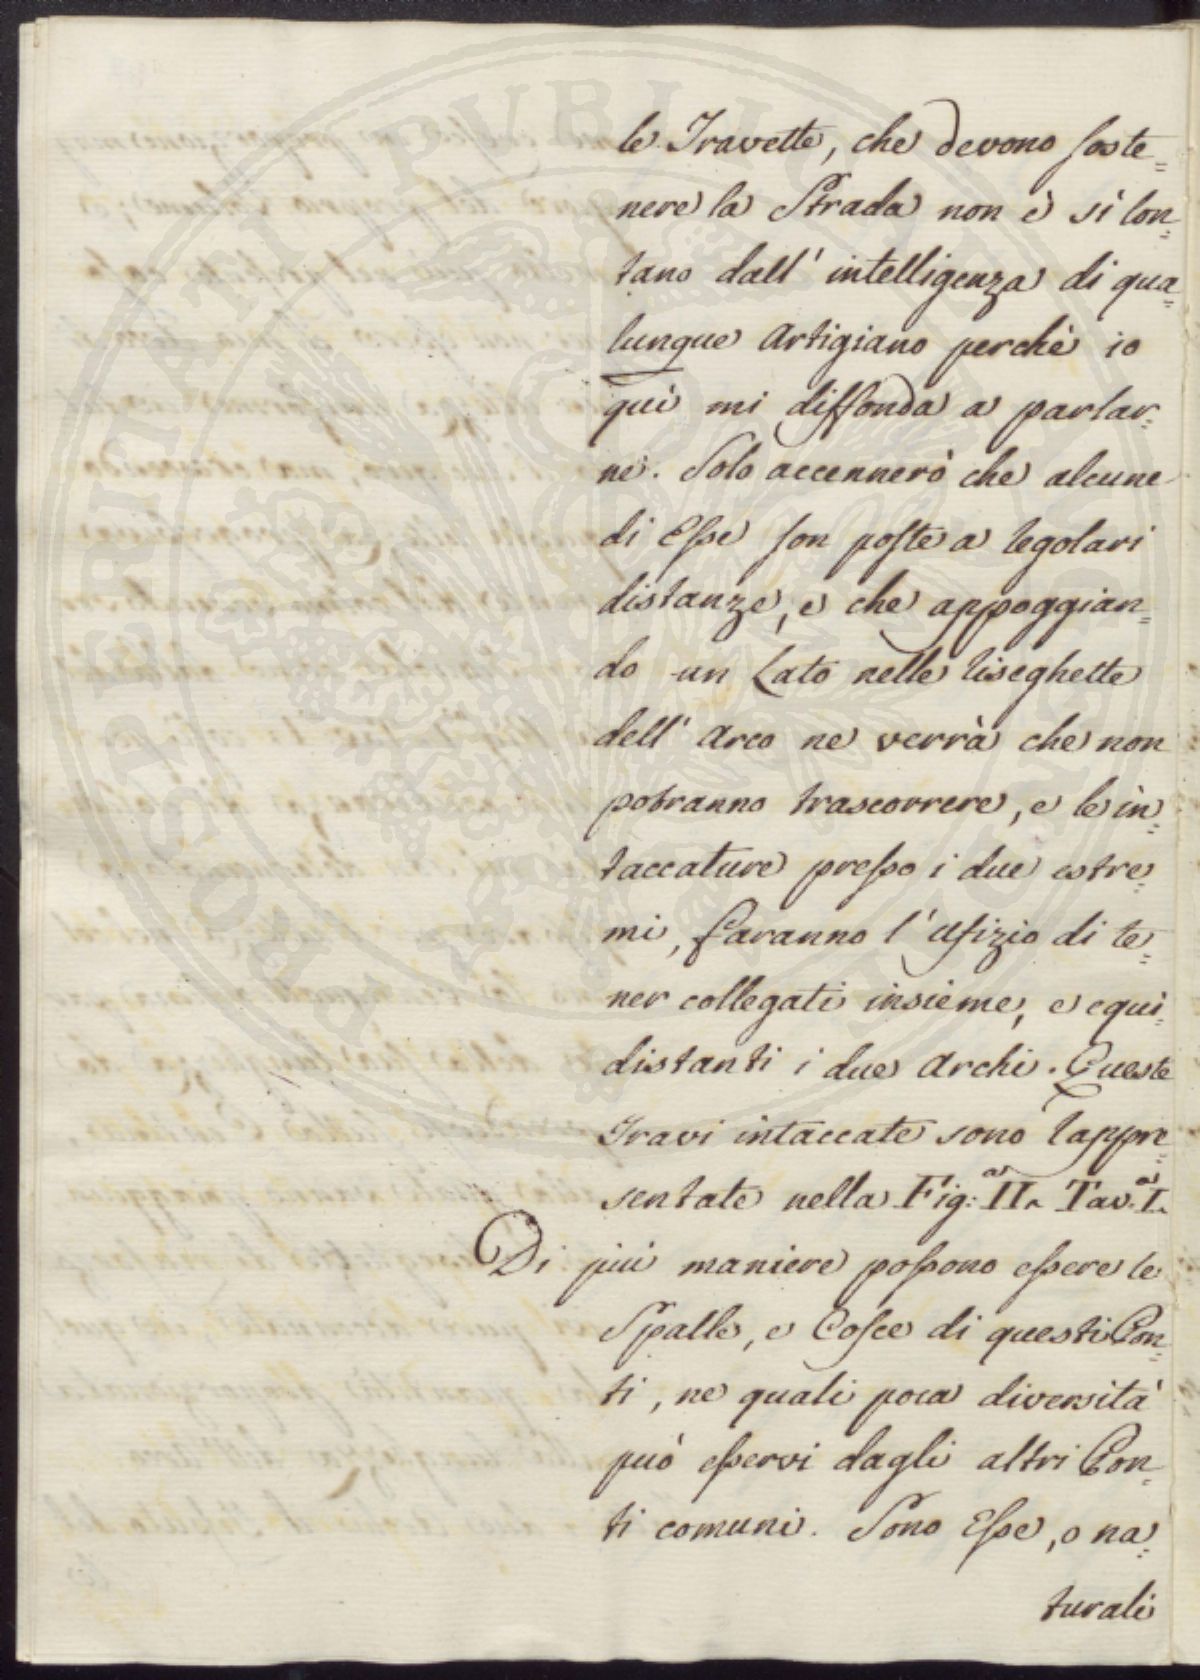 le Travette, che devono soste=
nere la Strada non è sì lon=
tano dall' intelligenza di qua=
lunque Artigiano perchè io
quì mi diffonda a parlar=
ne. Solo accennerò che alcune
di Esse son poste a regolari
distanze, e che appoggian=
do un Lato nelle riseghette
dell' Arco ne verrà che non
potranno trascorrere, e le in=
taccature presso i due estre=
mi, faranno l' ufizio di te=
ner collegati insieme, e equi=
distanti i due Archi. Queste
Travi intaccate sono rappre=
sentate nella Fig:ª II. Tav.ª I.
Di più maniere possono essere le
Spalle, e Cosce di questi Pon=
ti, ne quali poca diversità
può esservi dagli altri Pon=
ti comuni. Sono Esse, o na=
turali
POSTERITATI PUBLICE